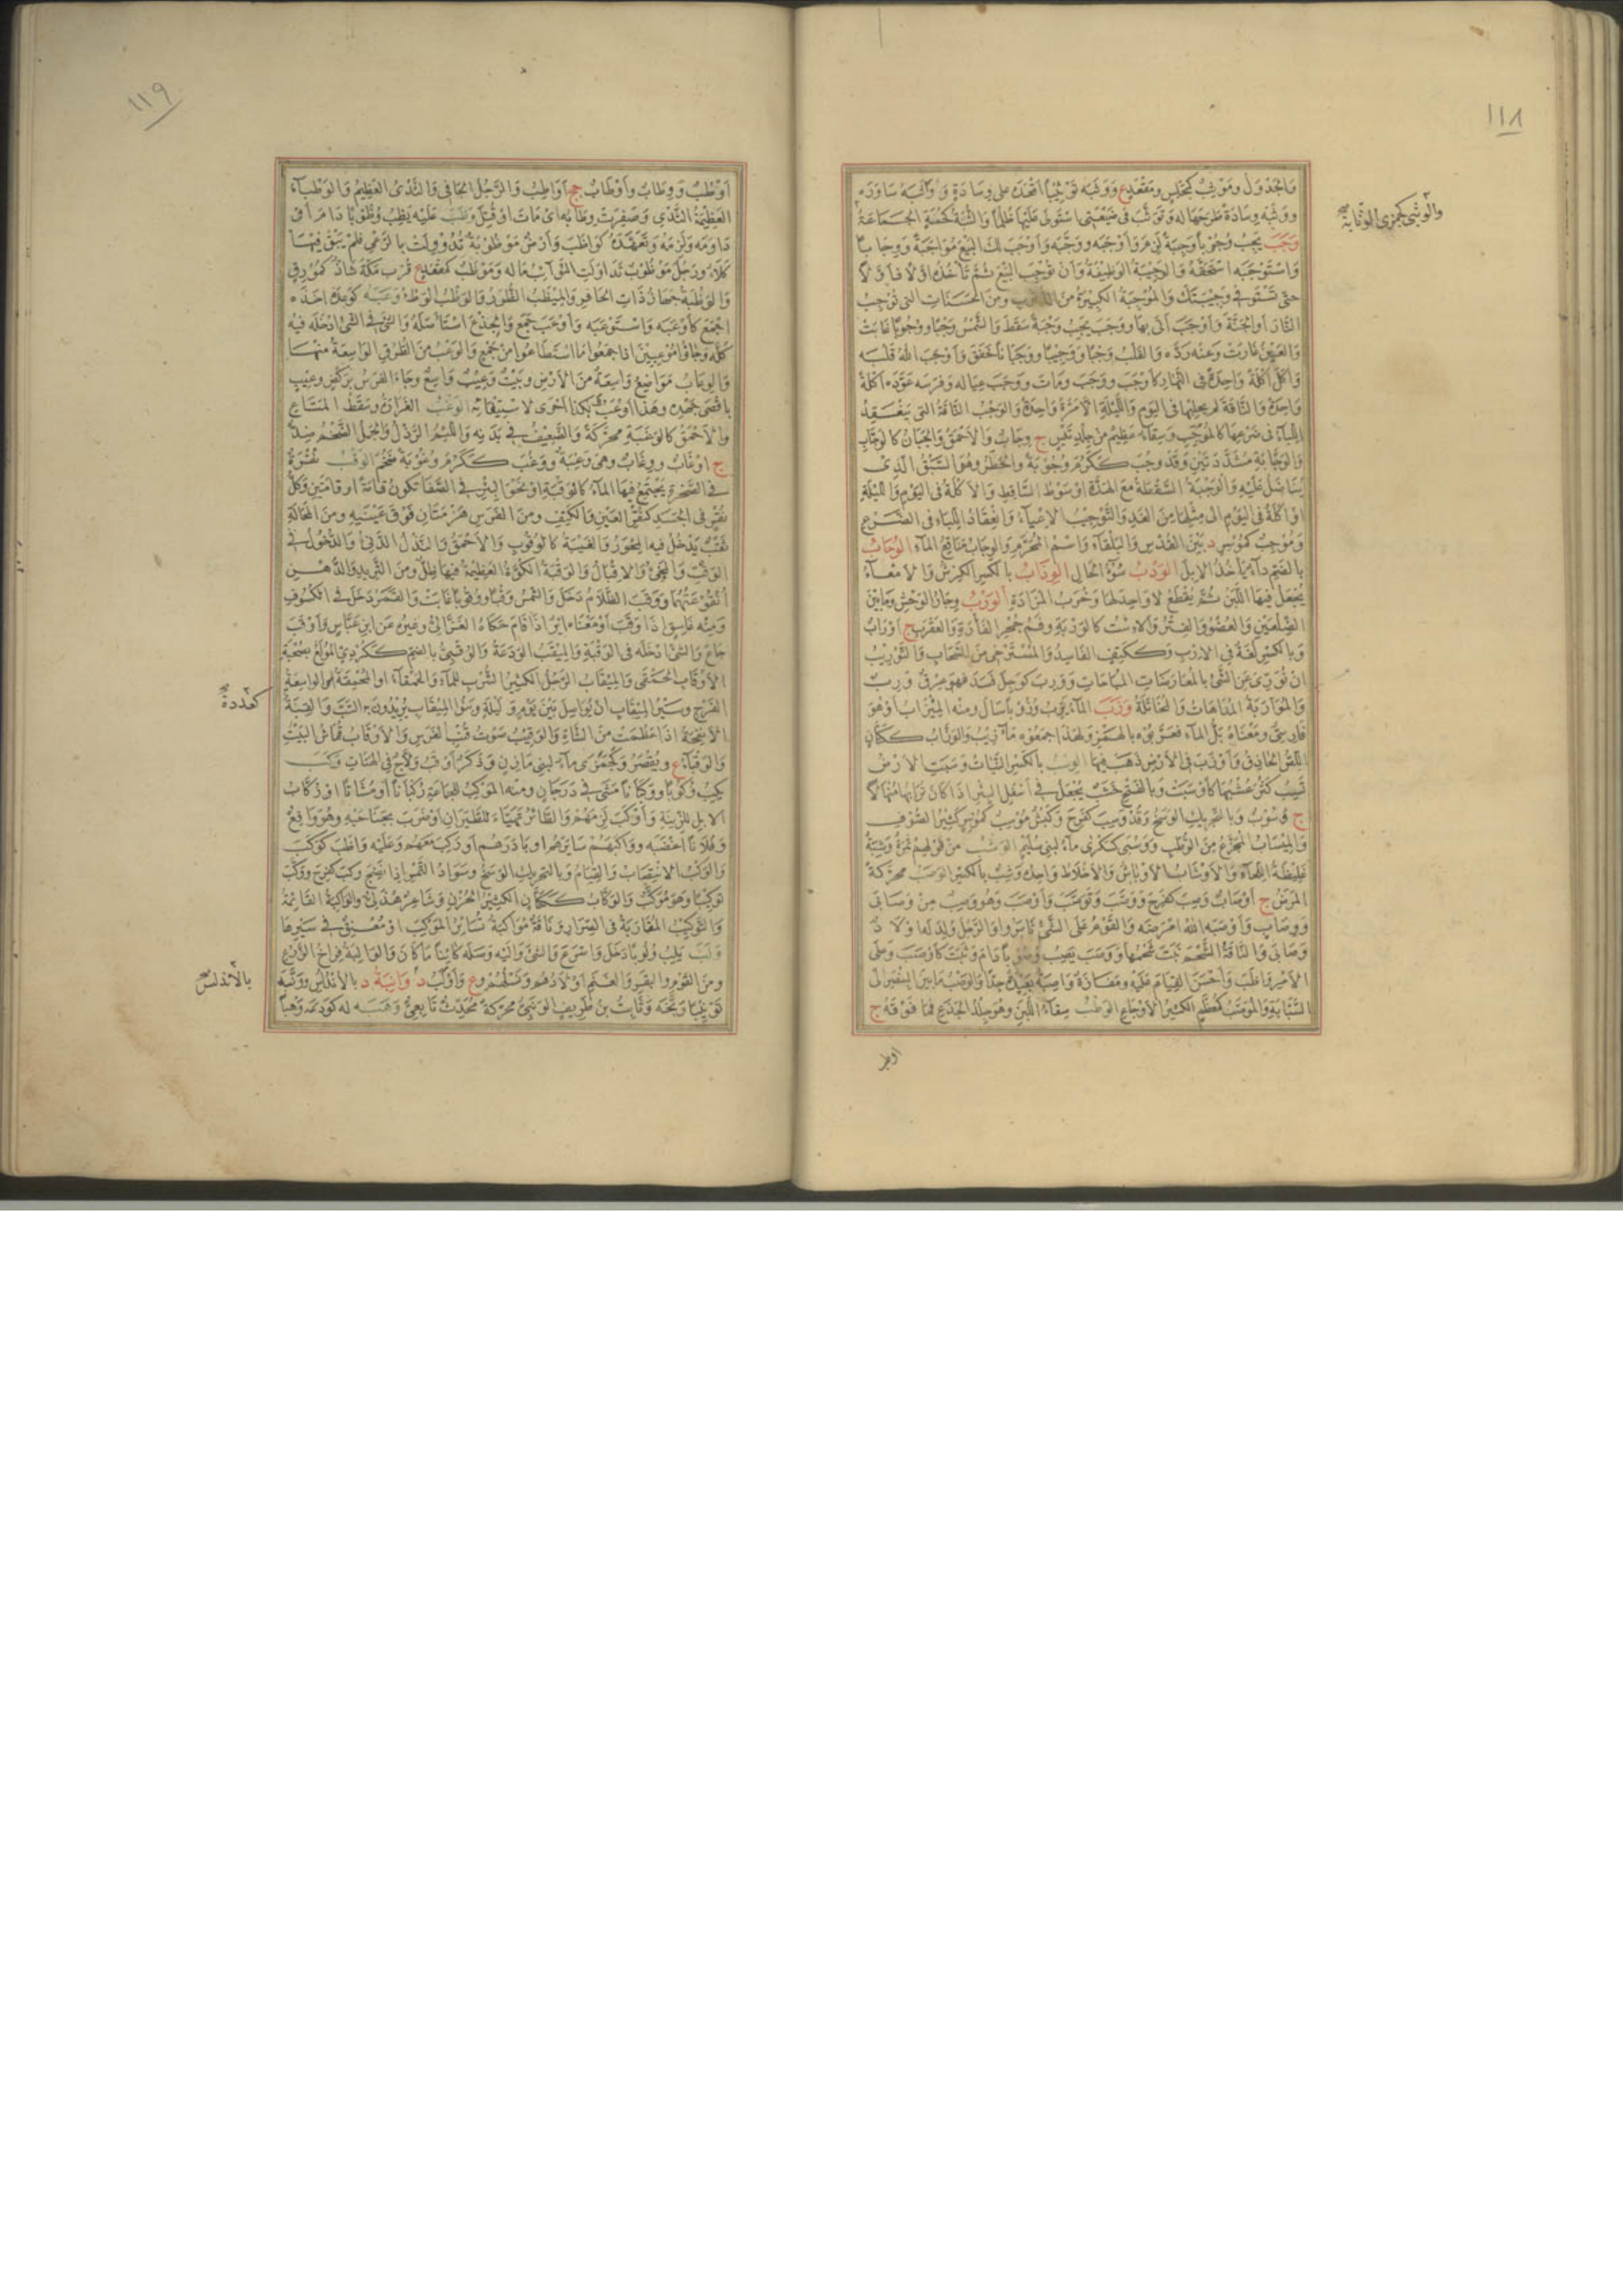 ١١٨
والجدول وموثب كمجلس ومقعد ع ووثبه توثيبا اقعده على وسادة وواثبه ساوره
ووثبه وسادة طرحها له وتوثب في ضيعتي استولى عليها ظلما والثبة كثبة الجماعة
والوثبى كجمزى الوثابة صح
وجب يجب وجوبا وجبة لزم وأوجبه ووجبه وأوجب لك البيع مواجبة ووجابا
واستوجبه استحقه والوجيبة الوظيفة وأن توجب البيع ثم تأخذه أولا فأولا
حتى تستوفي وجيبتك والموجبة الكبيرة من الذنوب ومن الحسنات التي توجب
النار أو الجنة وأوجب أتى بها ووجب يجب وجبة سقط والشمس وجبا ووجوبا غابت
والعين غارت وعنه رده والقلب وجبا ووجيبا ووجبانا خفق وأوجب الله قلبه
وأكل أكلة واحدة في النهار كأوجب ووجب ومات ووجب عياله وفرسه عودهم أكلة
واحدة والناقة لم يحلبها في اليوم والليلة الا مرة واحدة والوجب الناقة التي ينعقد
اللبأ في ضرعها كالموجب وسقاء عظيم من جلد تيس ج وجاب والأحمق والجبان كالوجاب
والوجابة مشددتين وقد وجب ككرم وجوبة والخطر وهو السبق الذي
يناضل عليه والوجبة السقطة مع الهدة أو صوت الساقط والأكلة في اليوم والليلة
أو أكلة في اليوم الى مثلها من الغد والتوجيب الاعياء وانعقاد اللباء في الضرع
وموجب كموسر د بين القدس والبلقاء واسم المحرم والوجاب مناقع الماء الوحاب
بالضم داء يأخذ الابل الودب سوء الحال الوذاب بالكسر الكرش والامعاء
يجعل فيها اللبن ثم يقطع لا واحد لها وخرب المزادة الورب وجار الوحش وما بين
الضلعين والعضو والفتر والاست كالوربة وفم جحر الفأرة والعقرب ج أوراب
وبالكسر لغة في الارب وككتف الفاسد والمسترخي من السحاب والتوريب
ان تورى عن الشيء بالمعارضات المباحات وورب كوجل فسد فهو عرق ورب
والمواربة المداهاة والمخاتلة وزب الماء يزب وزوبا سال ومنه الميزاب أو هو
فارسي ومعناه بل الماء فعربوه بالهمز ولهذا جمعوه مآزيب والوزاب ككتان
اللص الحاذق وأوزب في الأرض ذهب فيها الوسب بالكسر النبات وسبت الارض
تسب كثر عشبها كأوسبت وبالفتح خشب يجعل في أسفل البئر اذا كان ترابها منهالا
ج وسوب وبالتحريك الوسخ وقد وسب كفرح وكبش موسب كموسر كثير الصوف
والميساب المجزع من الرطب ووسبى كسكرى ماء لبني سليم الوشب من قولهم تمرة وشبة
غليظة اللحاء والأوشاب الأوباش والأخلاط واحدة وشب بالكسر الوصب محركة
المرض ج أوصاب وصب كفرح ووصب وتوصب وأوصب وهو وصب من وصابى
ووصاب وأوصبه الله أمرضه والقوم على الشيء ثابروا والرجل ولد له أولاد
وصابى والناقة الشحم نبت شحمها ووصب يصب وصوبا دام وثبت كأوصب وعلى
الأمر واظب وأحسن القيام عليه ومفازة واصبة بعيدة جدا والوصب ما بين البنصر الى
السبابة والموصب كمعظم الكثير الأوجاع الوطب سقاء اللبن وهو جلد الجذع فما فوقه ج
أوطب
١١٩
أوطب ووطاب وأوطاب جج أواطب والرجل الجافي والثدي العظيم والوطباء
العظيمة الثدي وصفرت وطابه أي مات أو قتل وظب عليه يظب وظوبا دام أو
داومه ولزمه وتعهده كواظب وأرض موظوبة تدوولت بالرعي فلم يبق فيها
كلأ ورجل موظوب تداولت النوائب ماله وموظب كمقعد ع قرب مكة شاذ كمورق
والوظبة جهاز ذات الحافر والميظب الظرر والوظب الوطء وعبه كوعده أخذه
اجمع كأوعبه واستوعبه وأوعب جمع والجذع استأصله والشيء في الشيء أدخله فيه
كله وجاؤا موعبين اذا جمعوا ما استطاعوا من جمع والوعب من الطرق الواسعة منها
والوعاب مواضع واسعة من الأرض وبيت وعيب واسع وجاء الفرس بركض وعيب
بأقصى جهده وهذا أوعب لكذا أحرى لاستيفائه الوغب الغرارة وسقط المتاع
والأحمق كالوغبة محركة والضعيف في بدنه واللئيم الرذل والجمل الضخم ضد
ج أوغاب ووغاب وهي وغبة ووغب ككرم وغوبة ضخم الوقب نقرة
في الصخرة يجتمع فيها الماء كالوقبة أو نحو البئر في الصفا تكون قامة أو قامتين وكل
نقر في الجسد كنقر العين والكتف ومن الفرس هزمتان فوق عينيه ومن المحالة
نقب يدخل فيه المحور والغيبة كالوقوب والأحمق والنذل الدنيء والدخول في
الوقب والمجيء والاقبال والوقبة الكوة العظيمة فيها ظل ومن الثريد والدهن
أنقوعتهما ووقب الظلام دخل والشمس وقبا ووقوبا غابت والقمر دخل في الكسوف
ومنه غاسق اذا وقب أو معناه أير اذا قام حكاه الغزالي وغيره عن ابن عباس وأوقب
جاع والشيء أدخله في الوقبة والميقب الودعة والوقبي بالضم ككردي المولع بصحبة
الأوقاب الحمقى والميقاب الرجل الكثير الشرب للماء والحمقاء أو المحمقة أو الواسعة
الفرج وسير الميقاب أن تواصل بين يوم وليلة وبنو الميقاب يريدون به السب والقبة
كعدة صح
الانفحة اذا عظمت من الشاة والوقيب صوت قنب الفرس والأوقاب قماش البيت
والوقباء ع ويقصر وكجمزى ماء لبني مازن وذكر أوقب ولاج في الهنات وكب
يكب وكوبا ووكبانا مشى في درجان ومنه الموكب للجماعة ركبانا أو مشاة أو ركاب
الابل للزينة وأوكب لزمهم والطائر تهيأ للطيران أو ضرب بجناحيه وهو واقع
وفلانا أغضبه وواكبهم سايرهم أو بادرهم أو ركب معهم وعليه واظب كوكب
والوكب الانتصاب والقيام وبالتحريك الوسخ وسواد التمر اذا نضج وكب كفرح ووكب
توكيبا وهو موكب والوكاب ككتان الكثير الحزن وشاعر هذلي والواكبة القائمة
والتوكيب المقاربة في الصرار وناقة مواكبة تساير الموكب أو معنق في سيرها
ولب يلب ولوبا دخل وأسرع والشيء واليه وصله كائنا ما كان والوالبة فراخ الزرع
ومن القوم والبقر والغنم أولادهم ونسلهم وع وأولب د وانبة د بالأندلس ووتبه
بالأندلس صح
توبيبا وبخه وثابت بن طريف الونبي محركة محدث تابعي وهبه له كودعه وهبا